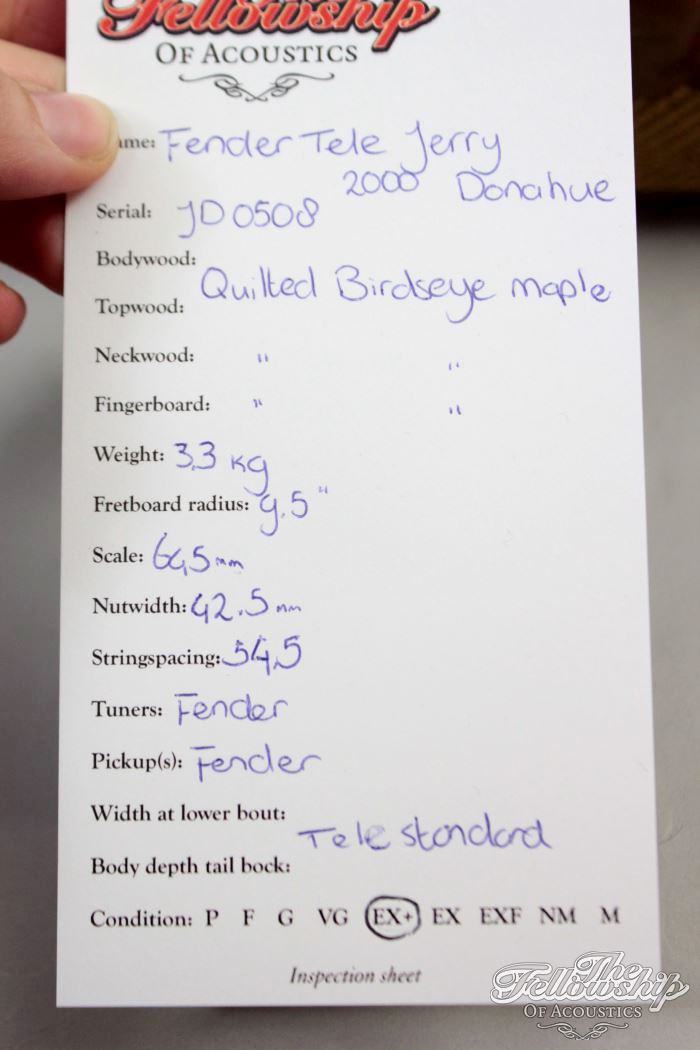 Fellowship
OF ACOUSTICS
ame: Fender Tele Jerry
2000 Donahue
Serial: JD0508
Bodywood:
Quilted Birdseye maple
Topwood:
Neckwood: " "
Fingerboard: " "
Weight: 3.3 kg
Fretboard radius: 9.5"
Scale: 64,5 mm
Nutwidth: 42.5 mm
Stringspacing: 54,5
Tuners: Fender
Pickup(s): Fender
Width at lower bout:
Tele standard
Body depth tail bock:
Condition: P F G VG EX+ EX EXF NM M
Inspection sheet
The
Fellowship
OF ACOUSTICS